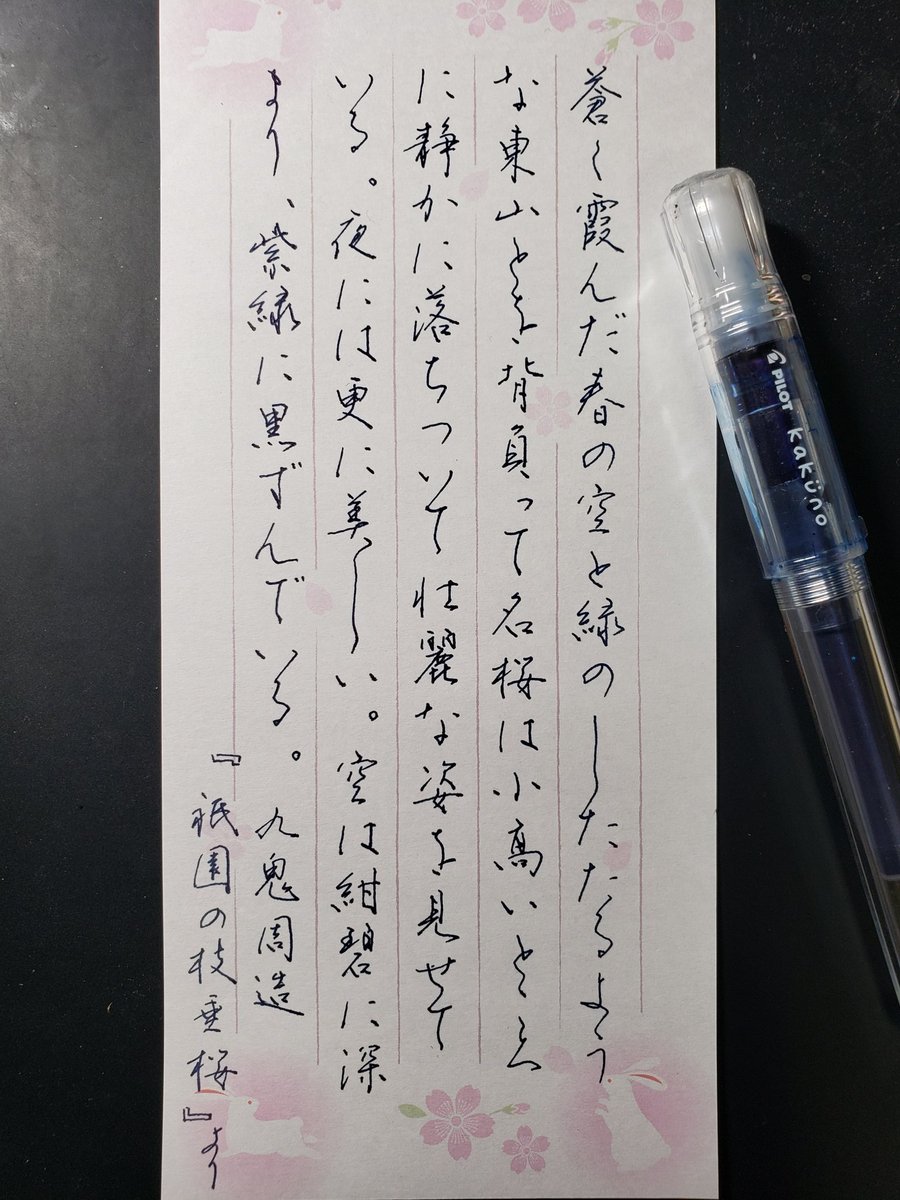 蒼く霞んだ春の空と緑のしたたるよう
な東山とを背負って名桜は小高いところ
に静かに落ちついて壮麗な姿を見せて
いる。夜には更に美しい。空は紺碧に深
まり、紫緑に黒ずんでいる。 九鬼周造
『祇園の枝垂桜』より
PILOT
kaküno